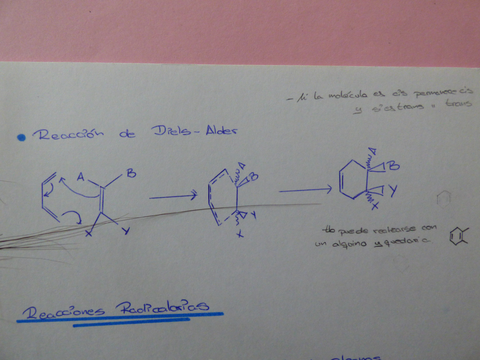 - Si la molécula es cis permanece cis
y si es trans = trans
• Reacción de Diels-Alder
A B
X Y
A
B
Y
X
A
B
Y
X
puede realizarse con
un alquino y quedaría
Reacciones Radicalarias